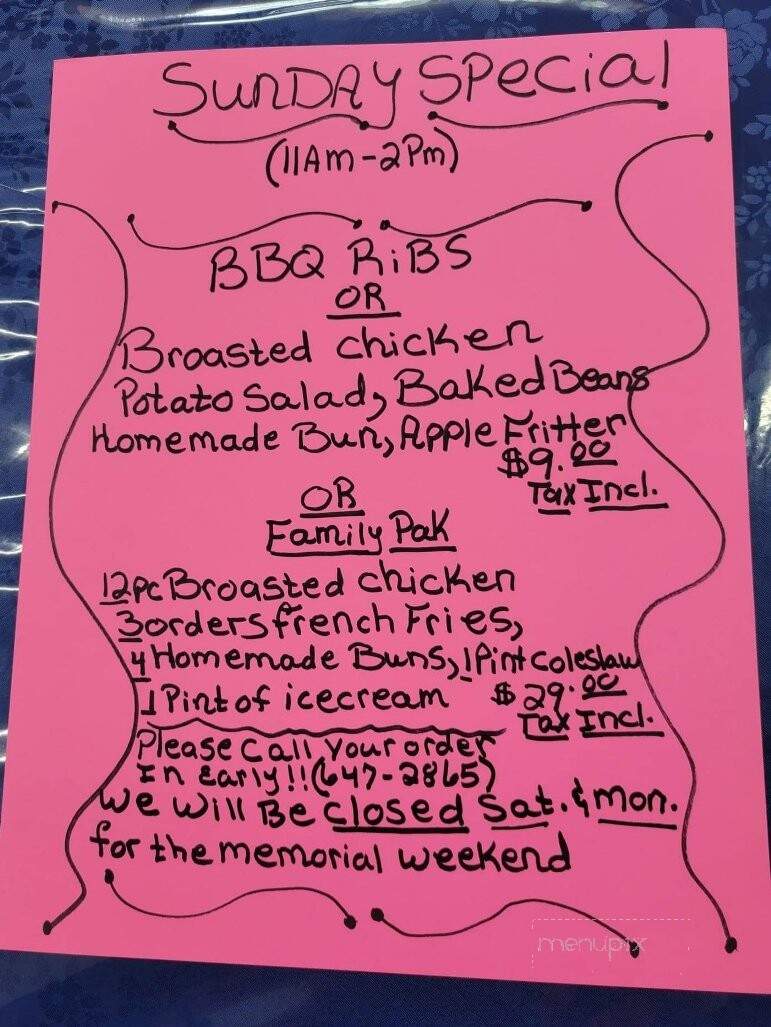 SUNDAY SPECial
(11Am-2Pm)
BBQ RiBS
OR
Broasted chicken
Potato Salad, Baked Beans
Homemade Bun, Apple Fritter
$9.00
Tax Incl.
OR
Family Pak
12pc Broasted chicken
3 orders french Fries,
4 Homemade Buns, 1 Pint Coleslaw
1 Pint of icecream $29.00
Tax Incl.
Please Call Your order
In Early!! (647-2865)
We Will Be Closed Sat. & Mon.
for the memorial weekend
menupix